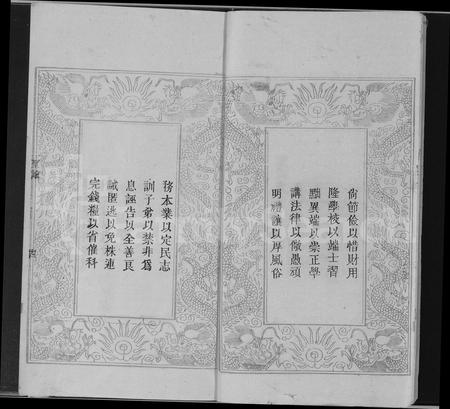 尙節儉以惜財用
隆學校以端士習
黜異端以崇正學
講法律以儆愚頑
明禮讓以厚風俗
務本業以定民志
訓子弟以禁非爲
息誣告以全善良
誡匿逃以免株連
完錢糧以省催科
聖諭
四